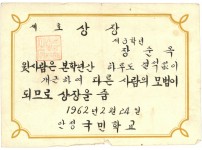 제 호 상 장
제3학년
장순옥
윗사람은 본학년간 하루도 결석없이
개근하여 다른 사람의 모범이
되므로 상장을 줌
1962년 2월 24일
안정 국민학교